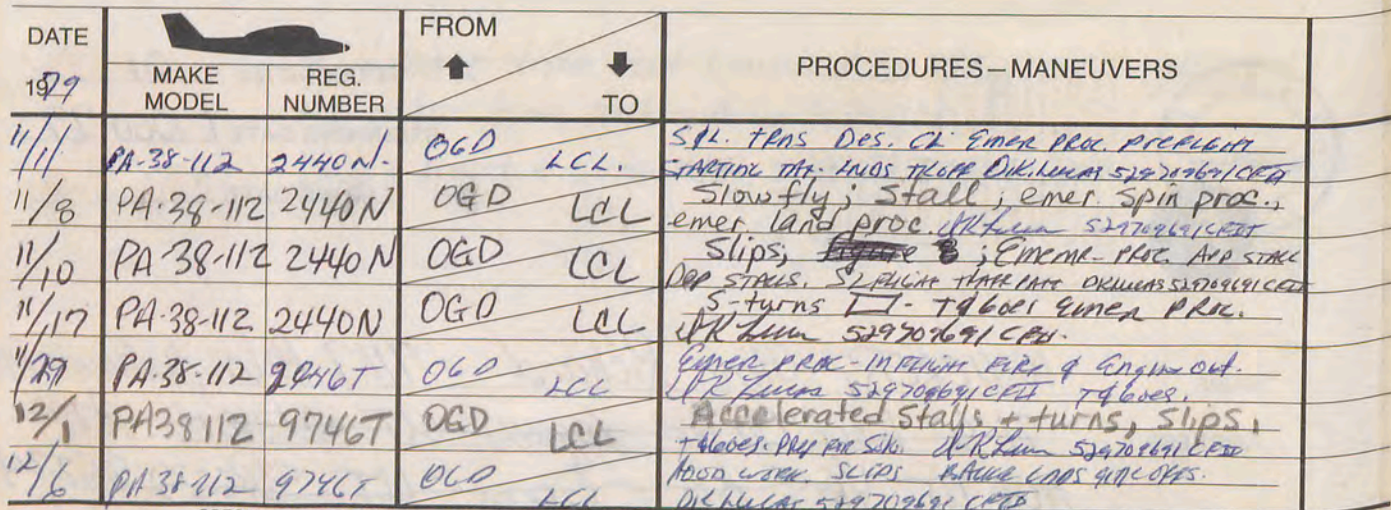 DATE
FROM
TO
1979
MAKE MODEL
REG. NUMBER
PROCEDURES – MANEUVERS
11/1 PA-38-112 2440N OGD LCL. S&L. TRNS Des. CL Emer PROC. PREFLIGHT
STARTING TAX. LNDS TKOFF DK. LUCAS 529709691 CFII
11/8 PA-38-112 2440N OGD LCL Slow fly; Stall; emer. Spin proc.,
emer. land proc. DK Lucas 529709691 CFII
11/10 PA-38-112 2440N OGD LCL Slips; 8; Ememr. PROC. APP STALL
DEP STALLS. DKLUCAS 529709691 CFII
11/17 PA-38-112 2440N OGD LCL S-turns - T&Goes Emer PROC.
DK Lucas 529709691 CFII.
11/29 PA-38-112 OGD LCL Emer PROC - INFLIGHT FIRE & Engine out.
DK Lucas 529709691 CFII T&Goes.
12/1 PA38112 9746T OGD LCL Accelerated Stalls + turns, Slips,
T&Goes. PREP FOR Solo. DK Lucas 529709691 CFII
12/6 PA 38-112 9746T OGD LCL HOOD WORK. SLIPS LNDS
DK LUCAS 529709691 CFII